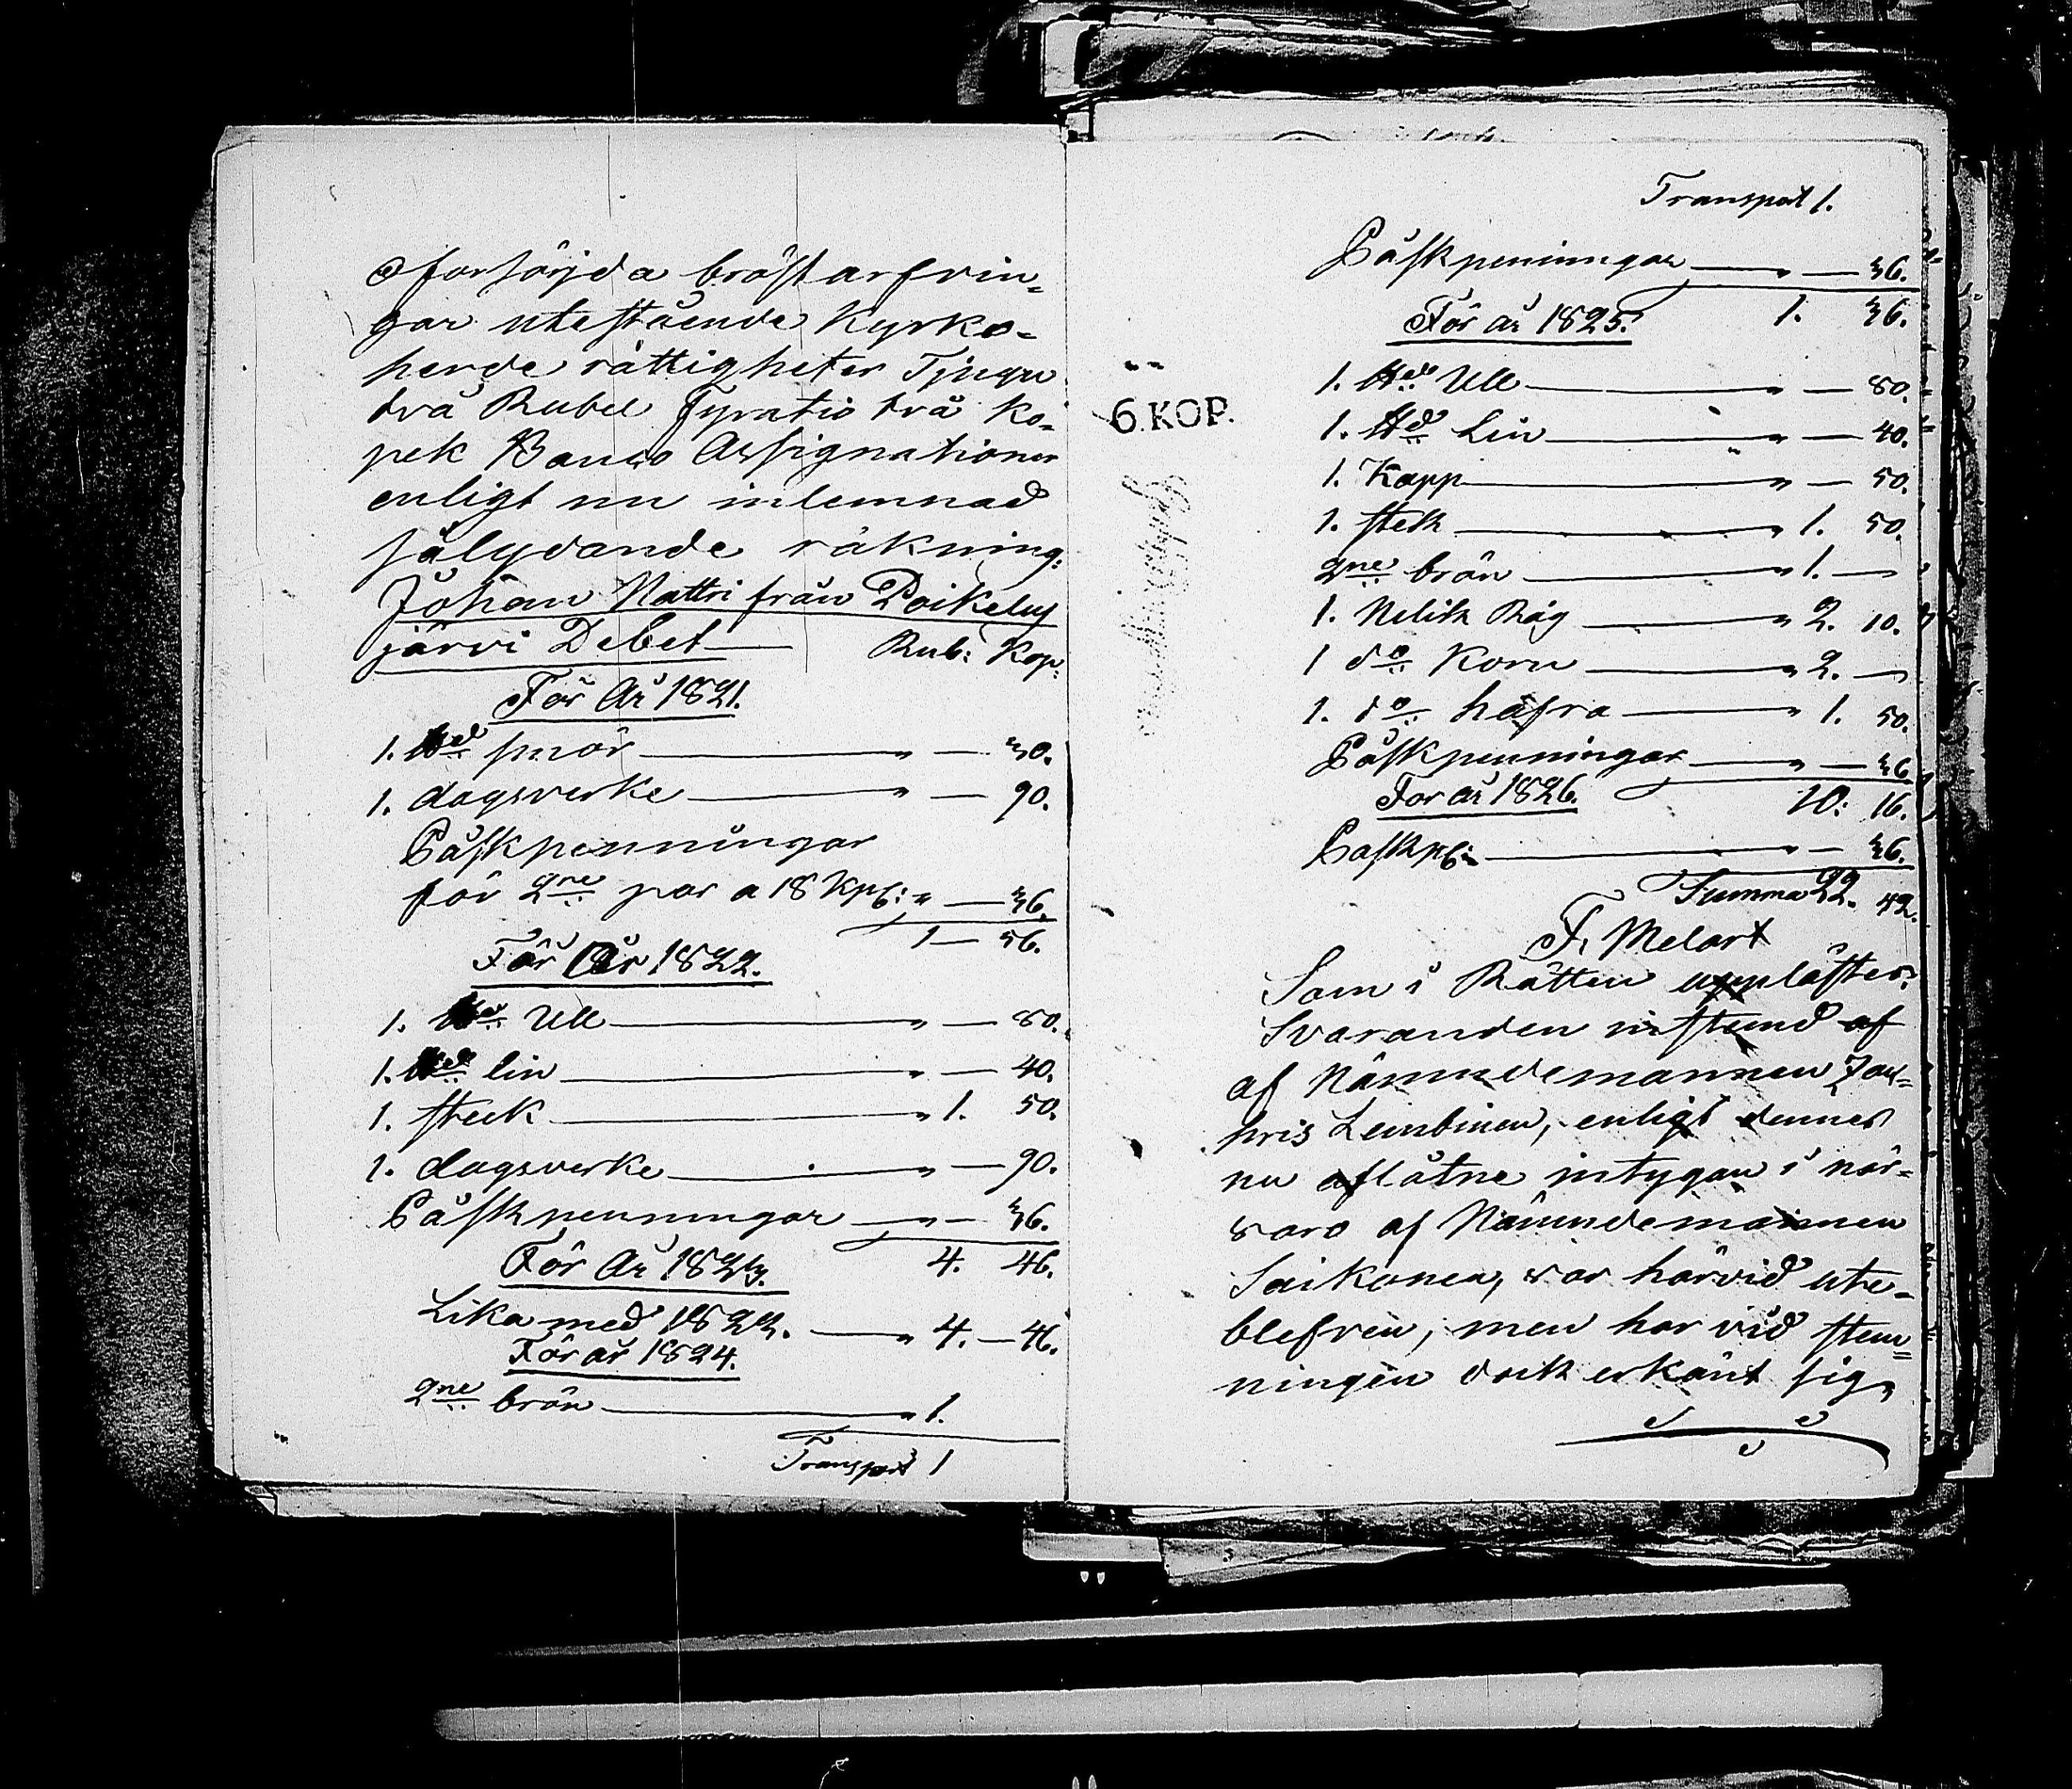 oforsörjda bröstarfvin=
gar utestående Kyrko=
herde rättigheter Tjugu
två Rubel Fyratio två Ko=
pek Banco Assignationer
enligt nu inlemnad
sålydande räkning:
Johan Mattri från Poikelus
järvi Debet — Rub: Kop:
För År 1821.
1. ℔d smör — " — 30.
1. dagsverke — " — 90.
Påskpenningar
för 2ne par a 18 Kp: " — 36.
1 — 56.
För År 1822.
1. ℔d Ull — " — 80.
1. ℔d lin — " — 40.
1. steek — " 1. 50.
1. dagsverke — " — 90.
Påskpenningar — " — 36.
4. 46.
För År 1823.
Lika med 1822. — " 4. — 46.
För år 1824.
2ne brön — " 1.
Transport 1
Transport 1.
Påskpeninngar — " — 36.
1. 36.
För år 1825.
6.KOP.
1. ℔d Ull — " — 80.
1. ℔d Lin — " — 40.
1. Kapp — " — 50.
1. stek — " 1. 50.
2ne brön — " 1. —
1. Nelik Råg — " 2. 10.
1 do Korn — " 2. —
1. do hafra — " 1. 50.
Påskpenningar — " — 36
10: 16.
For år 1826.
Paskp: — " — 36.
Summa 22. 42.
F. Melart
Som i Rätten upplästes.
Svaranden instemd af
af Nämndemannen
pris Leinbinen, enligt dennes
nu aflåtne intygan i när=
varo af Nämndemannen
Saikonen, var härvid ute=
blefven, men har vid stem=
ningen dock erkänt sig